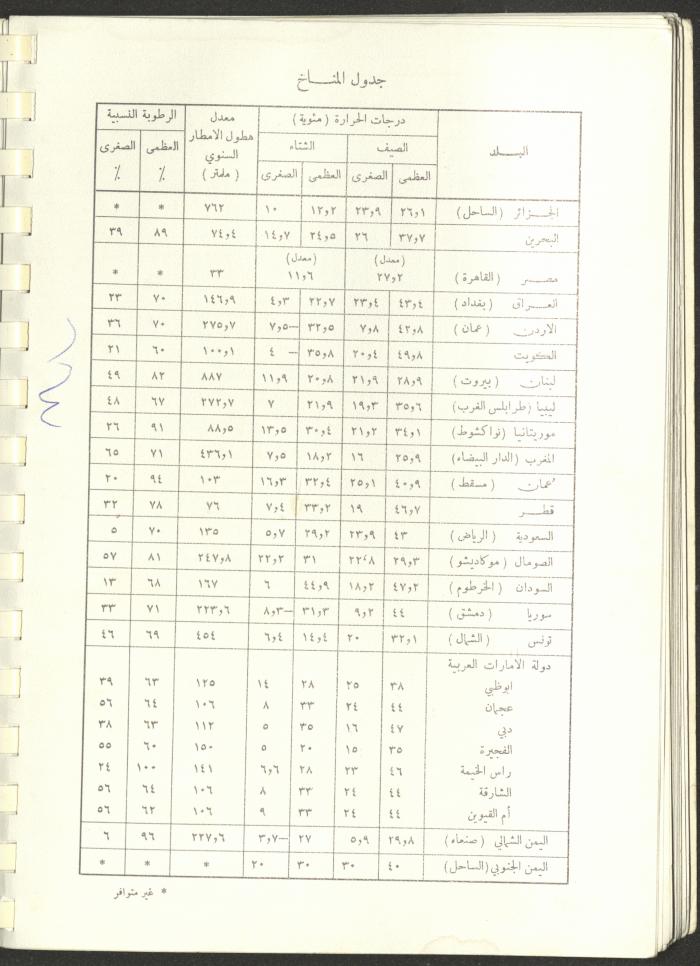 جدول المنـــاخ
البـــلد
درجات الحرارة (مئوية)
معدل هطول الامطار السنوي (ملمتر)
الرطوبة النسبية
الصيف
الشتاء
العظمى الصغرى العظمى الصغرى العظمى الصغرى
٪ ٪
الجـزائر (الساحل) ٢٦٫١ ٢٣٫٩ ١٢٫٢ ١٠ ٧٦٢ * *
البحرين ٣٧٫٧ ٢٦ ٢٤٫٥ ١٤٫٧ ٧٤٫٤ ٨٩ ٣٩
(معدل) (معدل)
مصـــر (القاهرة) ٢٧٫٢ ١١٫٦ ٣٣ * *
العـراق (بغداد) ٤٣٫٤ ٢٣٫٤ ٢٢٫٧ ٤٫٣ ١٤٦٫٩ ٧٠ ٢٣
الاردن (عمان) ٤٢٫٨ ٧٫٨ ٣٢٫٥ –٧٫٥ ٢٧٥٫٧ ٧٠ ٣٦
الكويت ٤٩٫٨ ٢٠٫٤ ٣٥٫٨ – ٤ ١٠٠٫١ ٦٠ ٢١
لبنان (بيروت) ٢٨٫٩ ٢١٫٩ ٢٠٫٨ ١١٫٩ ٨٨٧ ٨٢ ٤٩
ليبيا (طرابلس الغرب) ٣٥٫٦ ١٩٫٣ ٢١٫٩ ٧ ٢٧٢٫٧ ٦٧ ٤٨
موريتانيا (نواكشوط) ٣٤٫١ ٢١٫٢ ٣٠٫٤ ١٣٫٥ ٨٨٫٥ ٩١ ٢٦
المغرب (الدار البيضاء) ٢٥٫٩ ١٦ ١٨٫٢ ٧٫٥ ٤٣٦٫١ ٧١ ٦٥
عُمان (مسقط) ٤٠٫٩ ٢٥٫١ ٣٢٫٤ ١٦٫٣ ١٠٣ ٩٤ ٢٠
قطـــر ٤٦٫٧ ١٩ ٣٣٫٢ ٧٫٤ ٧٦ ٧٨ ٣٢
السعودية (الرياض) ٤٣ ٢٣٫٩ ٢٩٫٢ ٥٫٧ ١٣٥ ٧٠ ٥
الصومال (موكاديشو) ٢٩٫٣ ٢٢٫٨ ٣١ ٢٢٫٢ ٢٤٧٫٨ ٨١ ٥٧
السودان (الخرطوم) ٤٧٫٢ ١٨٫٢ ٤٤٫٩ ٦ ١٦٧ ٦٨ ١٣
سوريا (دمشق) ٤٤ ٩٫٢ ٣١٫٣ –٨٫٣ ٢٢٣٫٦ ٧١ ٣٣
تونس (الشمال) ٣٢٫١ ٢٠ ١٤٫٤ ٦٫٤ ٤٥٤ ٦٩ ٤٦
دولة الامارات العربية
ابوظبي ٣٨ ٢٥ ٢٨ ١٤ ١٢٥ ٦٣ ٣٩
عجمان ٤٤ ٢٤ ٣٣ ٨ ١٠٦ ٦٤ ٥٦
دبي ٤٧ ١٦ ٣٥ ٥ ١١٢ ٦٣ ٣٨
الفجيرة ٣٥ ١٥ ٢٠ ٥ ١٥٠ ٦٠ ٥٥
راس الخيمة ٤٦ ٢٣ ٢٨ ٦٫٦ ١٤١ ١٠٠ ٢٤
الشارقة ٤٤ ٢٤ ٣٣ ٨ ١٠٦ ٦٤ ٥٦
أم القيوين ٤٤ ٢٤ ٣٣ ٩ ١٠٦ ٦٢ ٥٦
اليمن الشمالي (صنعاء) ٢٩٫٨ ٥٫٩ ٢٧ –٣٫٧ ٢٢٧٫٦ ٩٦ ٦
اليمن الجنوبي (الساحل) ٤٠ ٣٠ ٣٠ ٢٠ * * *
* غير متوافر